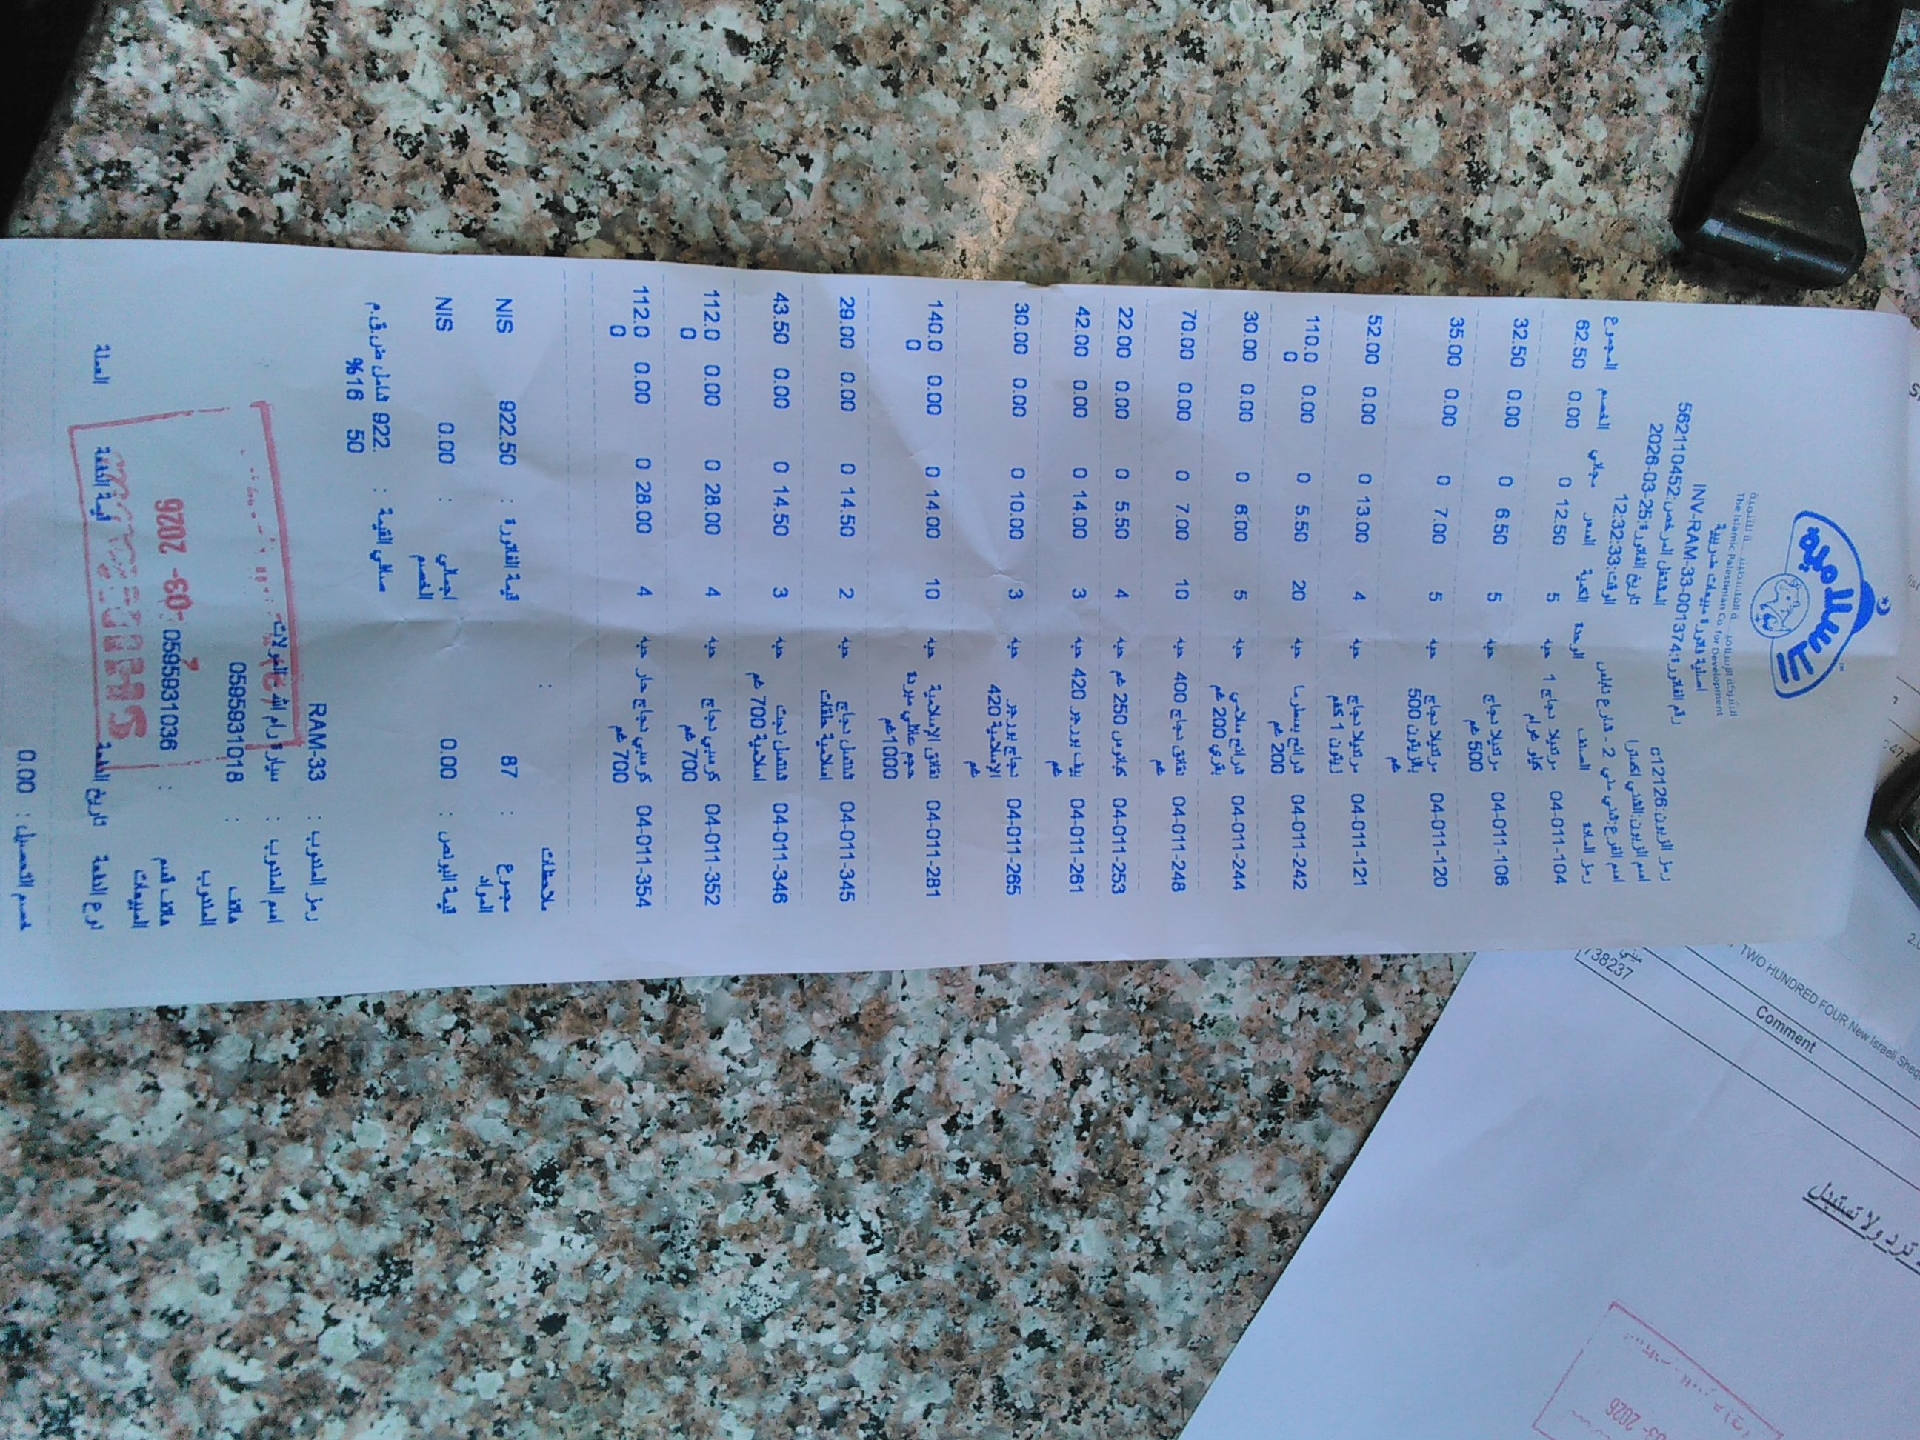 الإسلامية
The Islamic Palestinian Co. for Development
اصلية فاتورة مبيعات ضريبية
رقم الفاتورة:INV-RAM-33-001374
المشتغل المرخص:562110452
تاريخ الفاتورة:2026-03-25
الوقت:12:32:33
رمز الزبون:c12126
رمز المادة الصنف الوحدة الكمية السعر مجاني الخصم المجموع
04-011-104 مرتديلا دجاج 1 كيلو غرام حبة 5 12.50 0 0.00 62.50
04-011-106 مرتديلا دجاج 500 غم حبة 5 6.50 0 0.00 32.50
04-011-120 مرتديلا دجاج بالزيتون 500 غم حبة 5 7.00 0 0.00 35.00
04-011-121 مرتديلا دجاج زيتون 1 كغم حبة 4 13.00 0 0.00 52.00
04-011-242 شرائح بسطرما 200 غم حبة 20 5.50 0 0.00 110.00
04-011-244 شرائح سلامي بقري 200 غم حبة 5 6.00 0 0.00 30.00
04-011-248 نقانق دجاج 400 غم حبة 10 7.00 0 0.00 70.00
04-011-253 كباتوس 250 غم حبة 4 5.50 0 0.00 22.00
04-011-261 بيف بورجر 420 غم حبة 3 14.00 0 0.00 42.00
04-011-265 دجاج بورجر الإسلامية 420 غم حبة 3 10.00 0 0.00 30.00
04-011-281 نقانق الإسلامية حجم عائلي مبردة 1000غم حبة 10 14.00 0 0.00 140.00
04-011-345 شنيتسل دجاج اسلامية حلقات حبة 2 14.50 0 0.00 29.00
04-011-346 شنيتسل دجاج اسلامية 700 غم حبة 3 14.50 0 0.00 43.50
04-011-352 كرسبي دجاج 700 غم حبة 4 28.00 0 0.00 112.00
04-011-354 كرسبي دجاج حار 700 غم حبة 4 28.00 0 0.00 112.00
ملاحظات :
مجموع المواد : 87 قيمة الفاتورة : 922.50 NIS
قيمة البونص : 0.00 اجمالي الخصم : 0.00 NIS
صافي القيمة : 922.50 شامل ض.ق.م 16%
رمز المندوب : RAM-33
اسم المندوب : سيارة رام الله
هاتف المندوب : 0595931018
هاتف قسم المبيعات : 0595931036
-03- 2026
نوع الدفعة تاريخ الدفعة قيمة الدفعة العملة
خصم التحصيل : 0.00
738237
TWO HUNDRED FOUR New Israeli Sheq
Comment
ترد ولا تستبدل
03- 2026